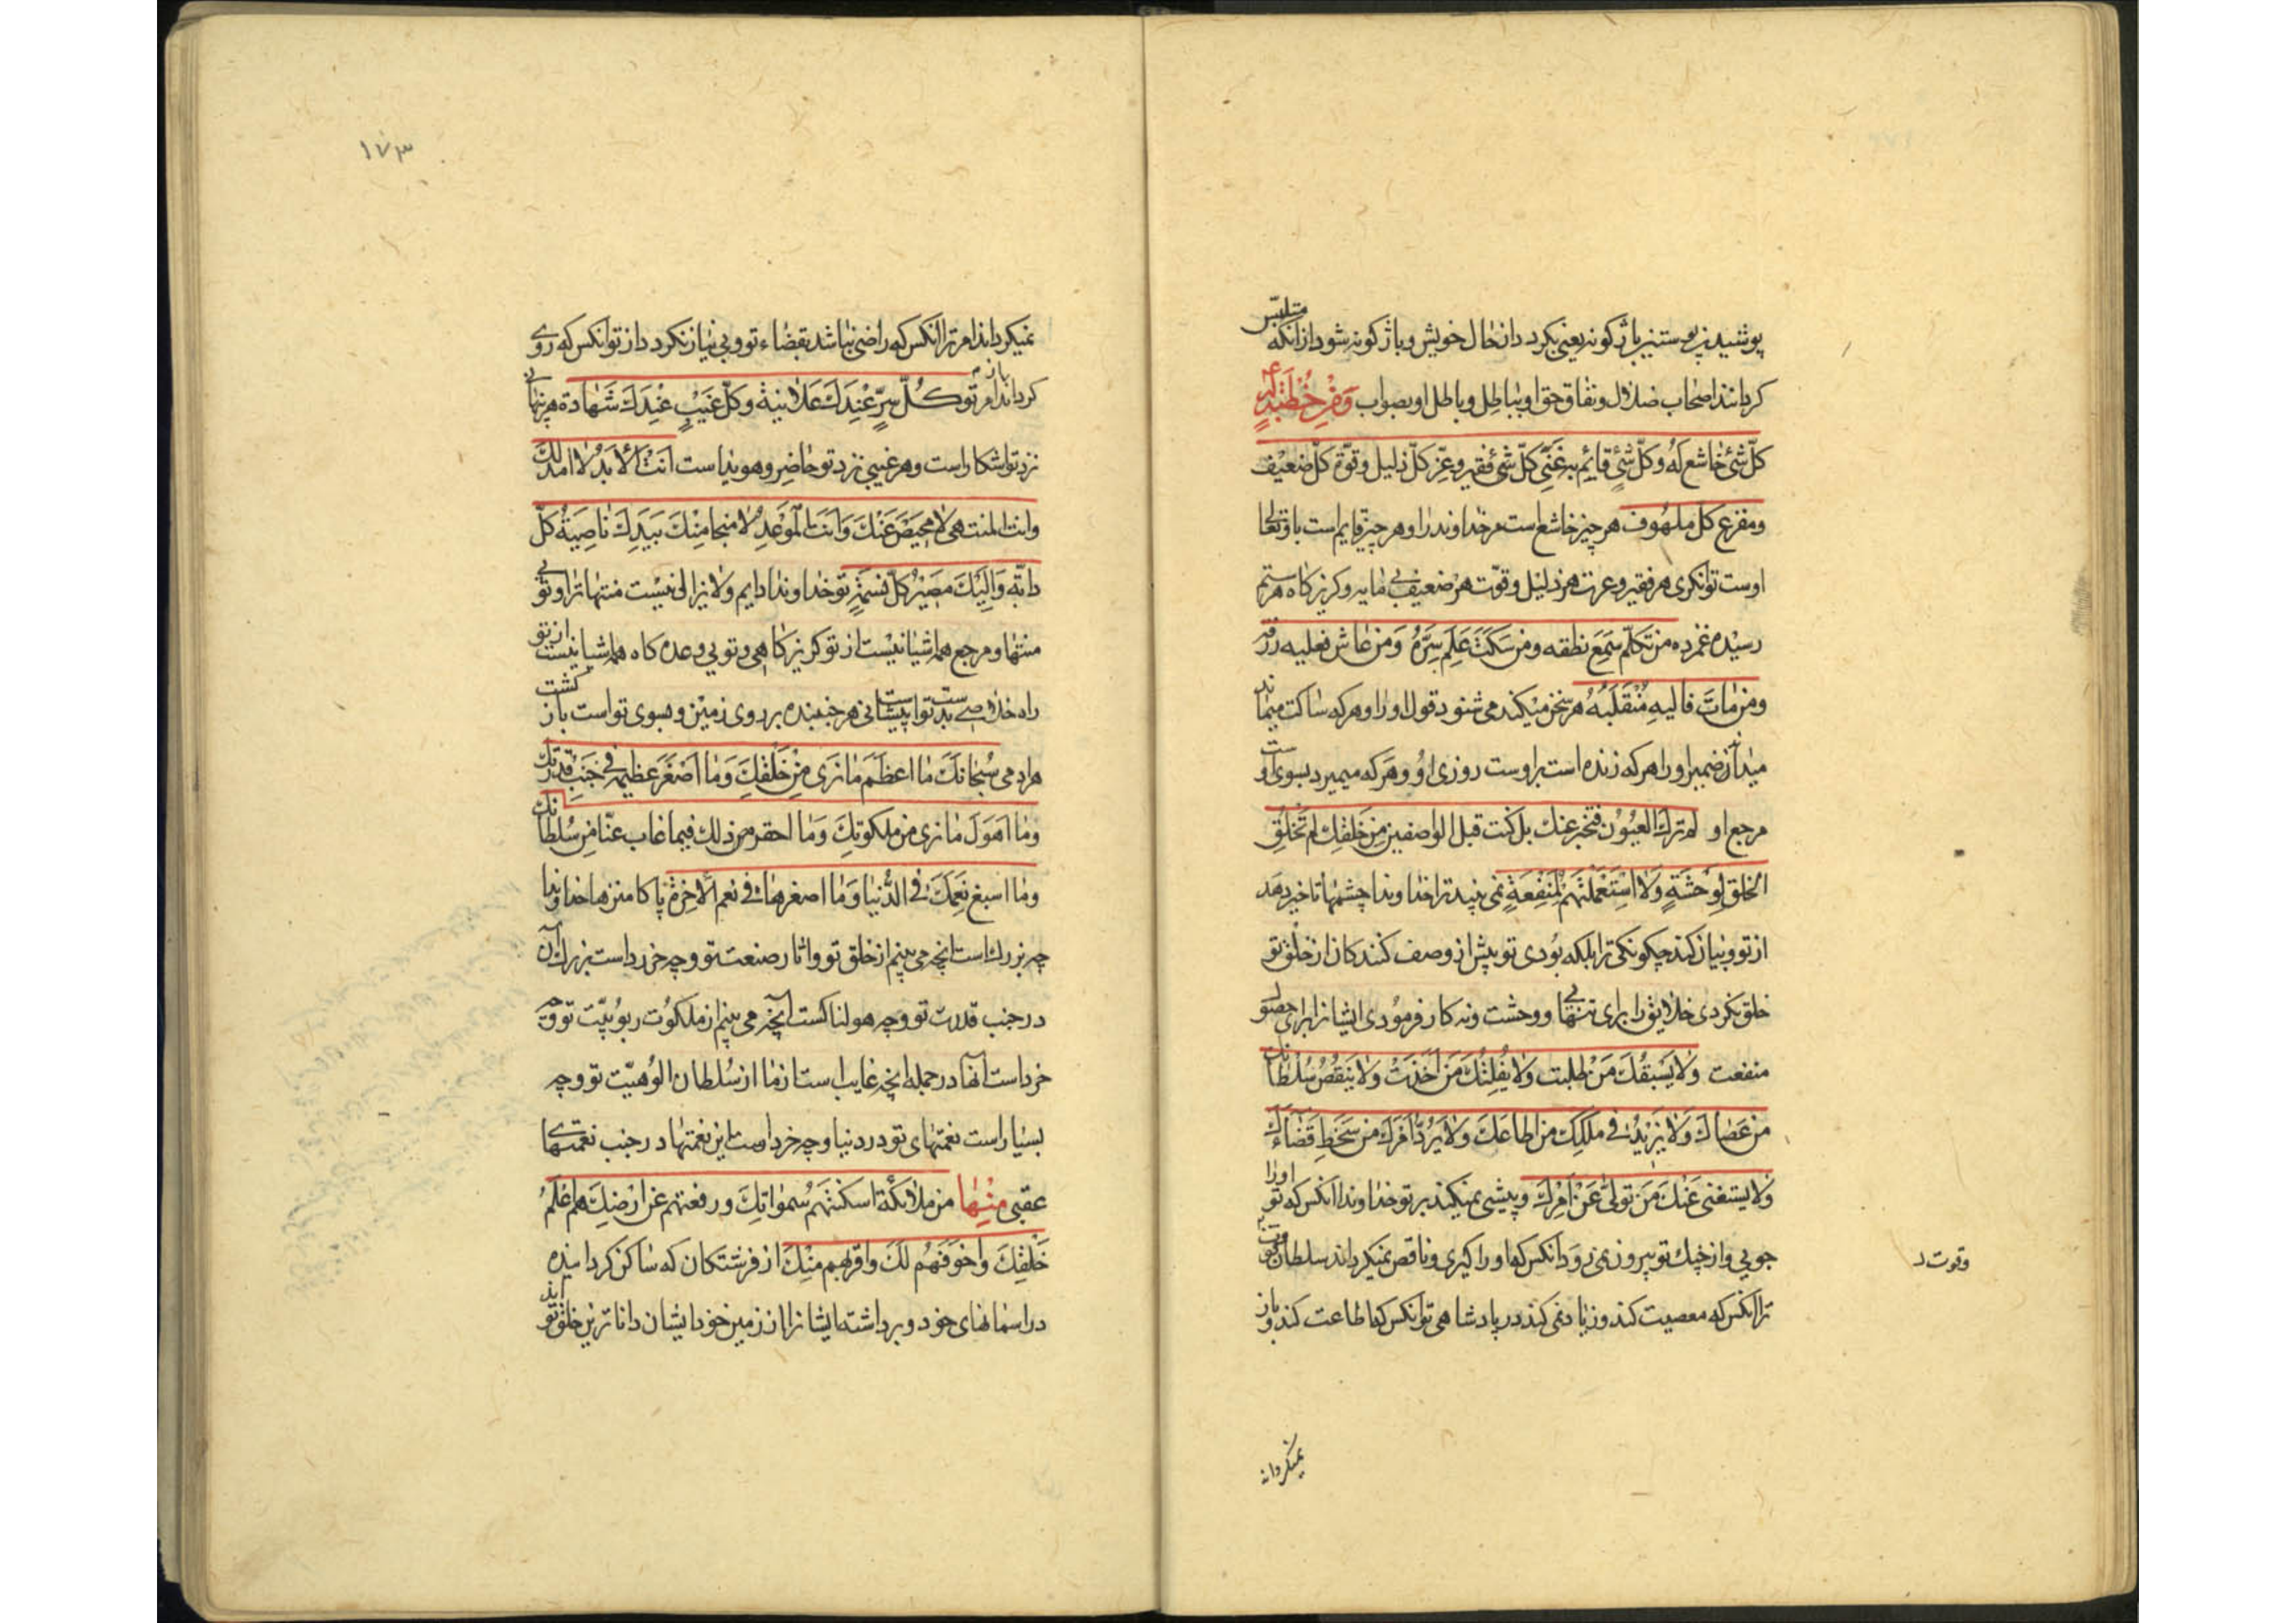 پوشیدن پوستین باژگونه یعنی بگردد از حال خویش و باژگونه شود از آنکه متلبّس
گردانند اصحاب ضلال و نفاق حق او بباطل و باطل او بصواب وَمِنْ خُطْبَةٍ لَهُ ع
كلّ شئ خاشع له وكلّ شئ قائم به غنى كلّ شئ فقير وعزّ كلّ ذليل وقوّة كلّ ضعيف
ومفزع كل ملهوف هر چیز خاشع است مر خداوند را و هر چیز قایم است باو تعالی
اوست توانگری هر فقیر و عزت هر ذلیل و قوّت هر ضعیف بی مایه و گریزگاه هر ستم
رسیده غمزده من تكلّم سَمِعَ نطقه ومن سَكَتَ عَلِمَ سِرَّهُ وَمن عاش فعليه رزقه
ومن مَاتَ فاليهِ مُنْقَلَبُهُ هر سخن میکند می شنود قول او را و هر که ساکت میماند
میداند ضمیر او را هر که زنده است بر اوست روزی او و هر که میمیرد بسوی اوست
مرجع او لم ترك العيُون فتخبر عنك بل كنت قبل الواصفين مِن خَلقك لم تَخْلُقِ
الخلق لِوَحْشَةٍ وَلا استَعْمَلْتَهُمْ لِمَنْفِعَةٍ نمی بیند ترا خداوندا چشمها تا خبر دهد
از تو و بیان کند چگونگی ترا بلکه بودی تو پیش از وصف کنندگان از خلق تو
خلق نکردی خلایق را برای تنهایی و وحشت و نه کار فرمودی ایشانرا برای حصول
منفعت وَلا يَسْبقُكَ مَنْ طلبت وَلا يُفلِتُكَ مَن اَخَذتَ وَلا يَنقُصُ سُلْطَانك
من عَصَاك وَلا يَزيدُ في ملكِكَ من اطاعَكَ وَلا يَرُدّ اَمْرَكَ من سَخِطَ قَضَاءَكَ
وَلا يستغنى عَنْكَ مَن تولّى عَنْ اَمْرِكَ و پیشی نمیکند بر تو خداوندا انکس که تو اورا
جویی و از چنك تو بیرون نمی رود آنکس که او را گیری و ناقص نمیگرداند سلطان
وقوت د
ترا انکس که معصیت کند و زیاد نمی کند در پادشاهی تو آنکس که اطاعت کند و باز
نمیگرداند
۱۷۳
نمیگرداند امر ترا آنکس که راضی نباشد بقضاء تو و بی نیاز نگردد از تو انکس که روی
باز گرداند از امر تو كُلّ سِرٍّ عِنْدَكَ عَلانية وكلّ غَيْبٍ عِنْدَكَ شَهَادة هر پنهانی
نزد تو اشکار است و هر غیبی نزد تو حاضر و هویداست اَنْتَ الاَبَدُ لا امد لَكَ
وانت المنتهى لا محِيصَ عَنْكَ وَاَنْتَ الموعِدُ لا منجا مِنْكَ بيَدِكَ ناصِيَةُ كلّ
دابّة وَاِلَيْكَ مصَيرُ كلّ نسمَةٍ تو خداوندا دایم و لایزالی نیست منتها ترا و تویی
منتها و مرجع همه اشیا نیست از تو گریزگاهی و تویی وعده گاه همه اشیا نیست از تو
راه خلاصی بدست تو است پیشانی هر جنبنده بر روی زمین و بسوی تو است بازگشت
هر ادمی سُبْحَانَكَ ما اعظَمَ ما نرَى مِنْ خَلْقِكَ وَما اَصْغَرَ عظيمه في جَنبِ قدرتك
وما اَهوَلَ ما نرى من ملكوتِكَ وَما احقر من ذلك فيما غاب عنّا مِن سُلطانك
وما اسبغ نِعَمَكَ في الدُّنيا وَما اصغرها في نعم الآخِرَة پاکا منزها خداوندا
چه بزرك است انچه می بینم از خلق تو و اثار صنعت تو و چه خرد است بزرك آن
در جنب قدرت تو و چه هولناکست آنچه می بینم از ملکوت ربوبیّت تو و چه
خرد است آنها در جمله انچه غایب است از ما از سُلطان الوُهیّت تو و چه
بسیار است نعمتهای تو در دنیا و چه خرد است این نعمتها در جنب نعمتهای
عقبی مِنْهَا من ملائكة اسكنتَهم سُمواتِكَ ورفعتهم عن ارْضِكَ هم اعْلَمُ
خَلْقِكَ وَاخوَفَهُم لكَ واقربهم مِنْكَ از فرشتگان که ساکن گردانیده
در اسمانهای خود و برداشته ایشانرا از زمین خود ایشان داناترین خلق تو اند